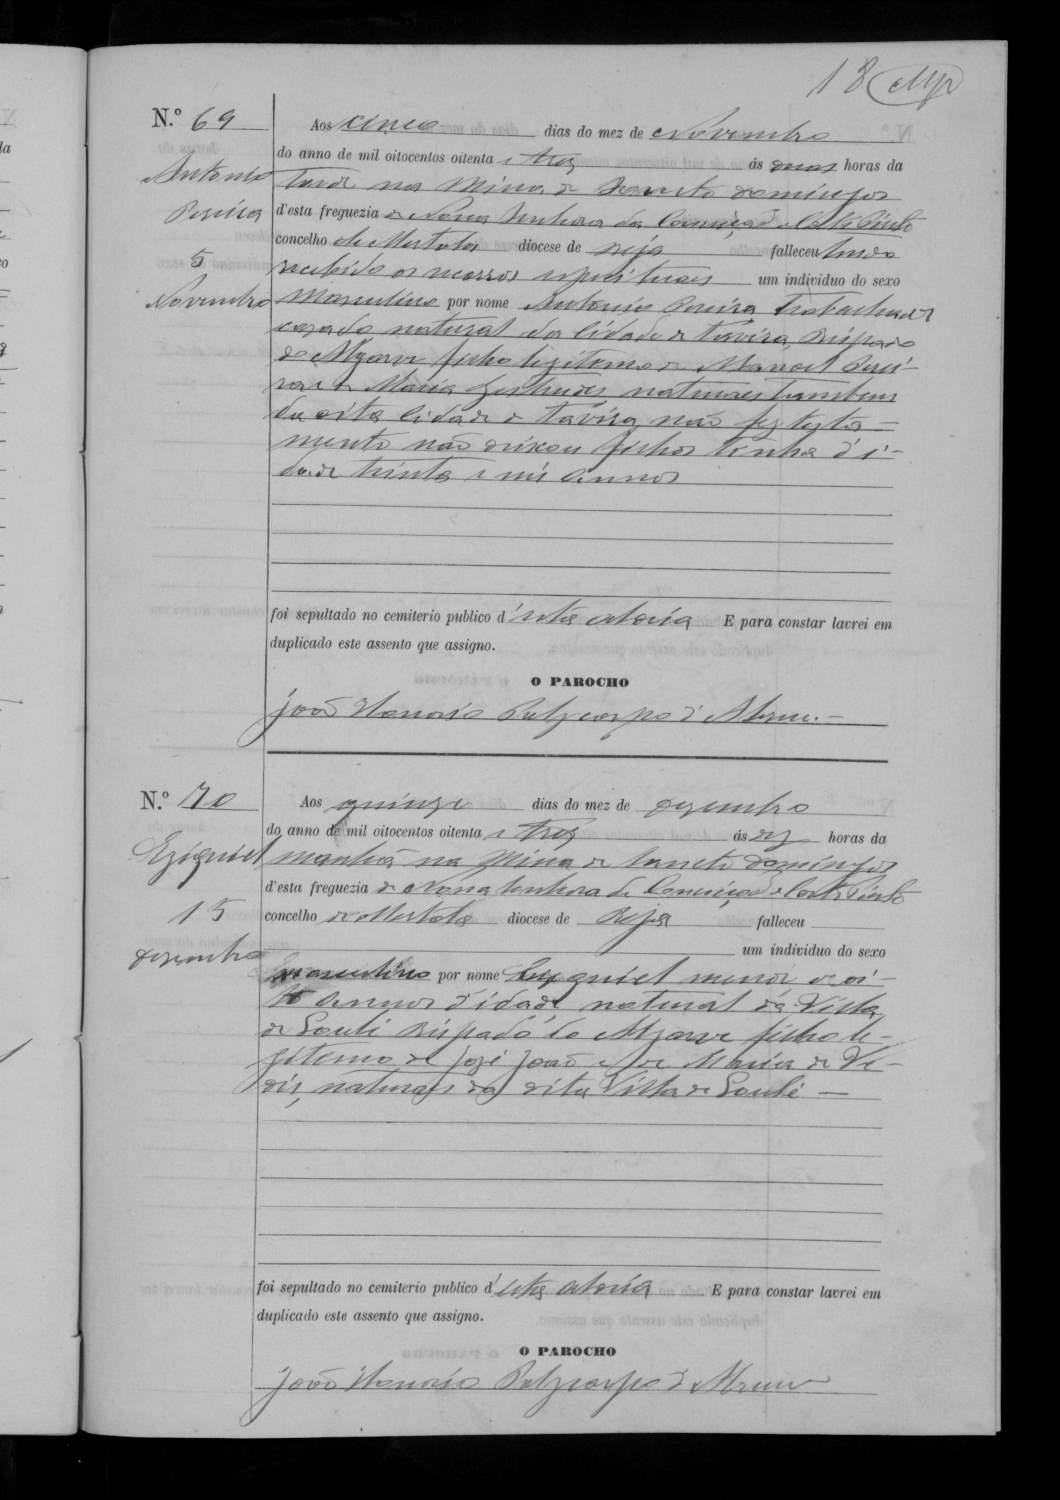 18
N.º 69
Antonio
Pereira
5
Novembro
Aos cinco dias do mez de Novembro
do anno de mil oitocentos oitenta e trez ás duas horas da
tarde na Mina de Sancto Domingos
d'esta freguezia de Nossa Senhora da Conceição de Corte Pinto
concelho de Mertola diocese de Beja falleceu tendo
recebido os socorros espirituaes um individuo do sexo
Masculino por nome Antonio Pereira trabalhador
cazado natural da Cidade de Tavira Bispado
do Algarve filho legitimo de Manoel Perei-
ra e de Maria Gertrudes naturaes tambem
da dita Cidade de Tavira, não fez testa-
mento não deixou filhos tinha d'i-
dade trinta e seis annos
foi sepultado no cemiterio publico d'esta aldeia E para constar lavrei em
duplicado este assento que assigno.
O PAROCHO
João Honorio Polycarpo d'Abreu.
N.º 70
Eziquiel
15
Dezembro
Aos quinze dias do mez de Dezembro
do anno de mil oitocentos oitenta e trez ás dez horas da
manhã na Mina de Sancto Domingos
d'esta freguezia de Nossa Senhora da Conceição de Corte Pinto
concelho de Mertola diocese de Beja falleceu
um individuo do sexo
masculino por nome Ezequiel menor de oi-
to annos d'idade natural da Villa
de Loulé Bispado do Algarve filho le-
gitimo de José João e de Maria de
naturaes da dita Villa de Loulé
foi sepultado no cemiterio publico d'esta aldeia E para constar lavrei em
duplicado este assento que assigno.
O PAROCHO
João Honorio Polycarpo d'Abreu